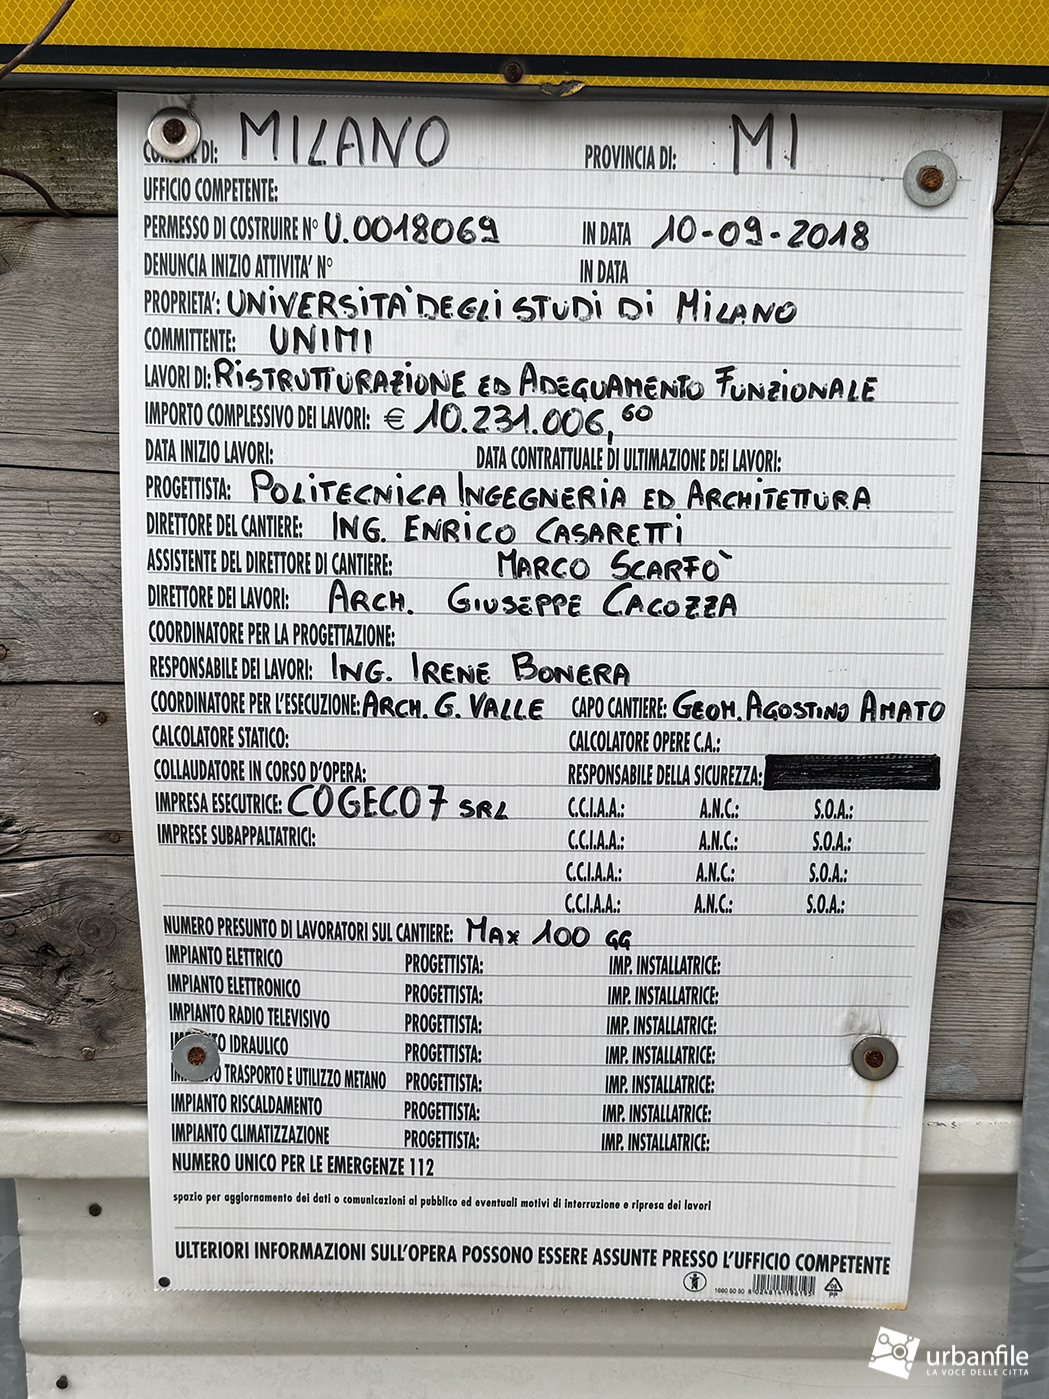 COMUNE DI: MILANO PROVINCIA DI: MI
UFFICIO COMPETENTE:
PERMESSO DI COSTRUIRE N° U.0018069 IN DATA 10-09-2018
DENUNCIA INIZIO ATTIVITA' N° IN DATA
PROPRIETA': UNIVERSITA' DEGLI STUDI DI MILANO
COMMITTENTE: UNIMI
LAVORI DI: RISTRUTTURAZIONE ED ADEGUAMENTO FUNZIONALE
IMPORTO COMPLESSIVO DEI LAVORI: € 10.231.006,60
DATA INIZIO LAVORI: DATA CONTRATTUALE DI ULTIMAZIONE DEI LAVORI:
PROGETTISTA: POLITECNICA INGEGNERIA ED ARCHITETTURA
DIRETTORE DEL CANTIERE: ING. ENRICO CASARETTI
ASSISTENTE DEL DIRETTORE DI CANTIERE: MARCO SCARFO`
DIRETTORE DEI LAVORI: ARCH. GIUSEPPE CACOZZA
COORDINATORE PER LA PROGETTAZIONE:
RESPONSABILE DEI LAVORI: ING. IRENE BONERA
COORDINATORE PER L'ESECUZIONE: ARCH. G. VALLE CAPO CANTIERE: GEOM. AGOSTINO AMATO
CALCOLATORE STATICO: CALCOLATORE OPERE C.A.:
COLLAUDATORE IN CORSO D'OPERA: RESPONSABILE DELLA SICUREZZA:
IMPRESA ESECUTRICE: COGECO7 SRL C.C.I.A.A.: A.N.C.: S.O.A.:
IMPRESE SUBAPPALTATRICI: C.C.I.A.A.: A.N.C.: S.O.A.:
C.C.I.A.A.: A.N.C.: S.O.A.:
C.C.I.A.A.: A.N.C.: S.O.A.:
NUMERO PRESUNTO DI LAVORATORI SUL CANTIERE: MAX 100 GG
IMPIANTO ELETTRICO PROGETTISTA: IMP. INSTALLATRICE:
IMPIANTO ELETTRONICO PROGETTISTA: IMP. INSTALLATRICE:
IMPIANTO RADIO TELEVISIVO PROGETTISTA: IMP. INSTALLATRICE:
IMPIANTO IDRAULICO PROGETTISTA: IMP. INSTALLATRICE:
IMPIANTO TRASPORTO E UTILIZZO METANO PROGETTISTA: IMP. INSTALLATRICE:
IMPIANTO RISCALDAMENTO PROGETTISTA: IMP. INSTALLATRICE:
IMPIANTO CLIMATIZZAZIONE PROGETTISTA: IMP. INSTALLATRICE:
NUMERO UNICO PER LE EMERGENZE 112
spazio per aggiornamento dei dati o comunicazioni al pubblico ed eventuali motivi di interruzione e ripresa dei lavori
ULTERIORI INFORMAZIONI SULL'OPERA POSSONO ESSERE ASSUNTE PRESSO L'UFFICIO COMPETENTE
PP
urbanfile
LA VOCE DELLE CITTÀ